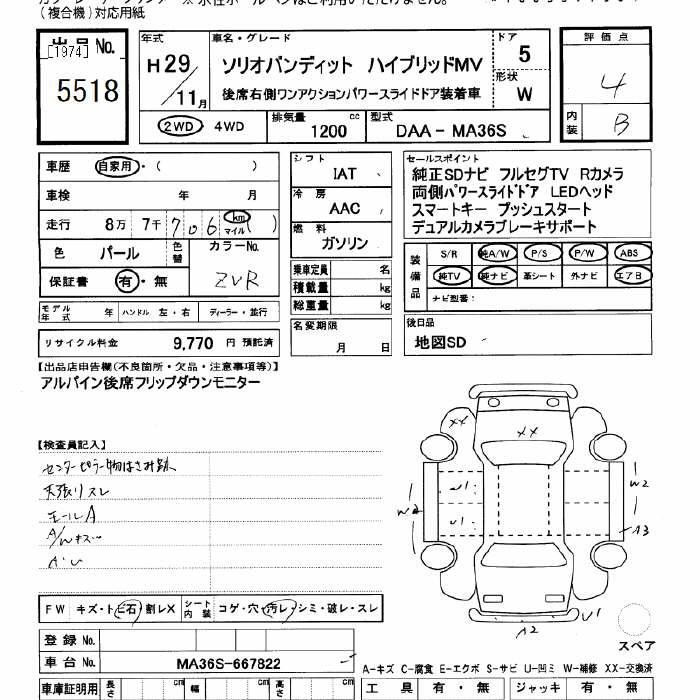 (複合機)対応用紙
出品 No.
[1974]
5518
年式
H29/11月
車名・グレード
ソリオバンディット ハイブリッドMV
後席右側ワンアクションパワースライドドア装着車
ドア
5
形状
W
評価点
4
内装
B
2WD 4WD
排気量 1200 cc
型式 DAA－MA36S
車歴 自家用・( )
車検 年 月
走行 8万 7千 706 km マイル ( )
色 パール 色替
カラーNo. ZVR
保証書 有・無
モデル年式 年 ハンドル 左・右 ディーラー・並行
リサイクル料金 9,770 円 預託済
シフト
IAT
冷房
AAC
燃料
ガソリン
乗車定員 名
積載量 kg
総重量 kg
名変期限
月 日
セールスポイント
純正SDナビ フルセグTV Rカメラ
両側パワースライドドア LEDヘッド
スマートキー プッシュスタート
デュアルカメラブレーキサポート
装備品
S/R 純A/W P/S P/W ABS
純TV 純ナビ 革シート 外ナビ エアB
ナビ型番:
後日品
地図SD
【出品店申告欄(不良箇所・欠品・注意事項等)】
アルパイン後席フリップダウンモニター
【検査員記入】
センターピラー物はさみ跡
天張りスレ
モールA
A/Wキズ
A・U
XX
XX
U1
U1
W2
W2
A3
A2
U1
スペア
FW キズ・トビ石 割レX シート内装 コゲ・穴・汚レ・シミ・破レ・スレ
登録 No.
車台 No. MA36S-667822
A-キズ C-腐食 E-エクボ S-サビ U-凹ミ W-補修 XX-交換済
車庫証明用 長さ cm 幅 cm 高さ cm
工具 有・無 ジャッキ 有・無